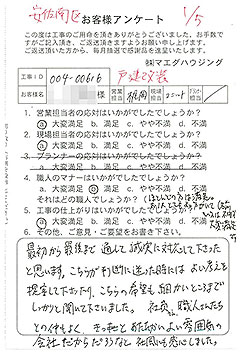 安佐南区
お客様アンケート
1/5
この度は工事のご用命を頂きありがとうございました。お手数で
すがご記入頂き、ご返送頂きますようお願い申し上げます。ご返
送頂いた方から、毎月抽選で感謝品を進呈いたします。
㈱マエダハウジング
工事ID 004-00616 戸建改装
営業担当 梶岡 工事担当
1. 営業担当者の応対はいかがでしたでしょうか?
a. 大変満足 b. 満足 c. やや不満 d. 不満
2. 現場担当者の応対はいかがでしたでしょうか?
a. 大変満足 b. 満足 c. やや不満 d. 不満
3. プランナーの応対はいかがでしたでしょうか?
a. 大変満足 b. 満足 c. やや不満 d. 不満
4. 職人のマナーはいかがでしたでしょうか?
a. 大変満足 b. 満足 c. やや不満 d. 不満
それはどの職人でしょうか?
5. 工事の仕上がりはいかがでしたでしょうか?
a. 大変満足 b. 満足 c. やや不満 d. 不満
その他、ご意見・ご要望をお書き下さい。
最初から最後まで通して誠実に対応して下さった
と思います。こちらが判断に迷った時にはよい考えを
提案して下さったり、こちらの希望も細かいところまで
しっかりと聞いて下さいました。社員、職人さんたち
との仲もよく、きっと
会社だからだろうなと 感心しました。